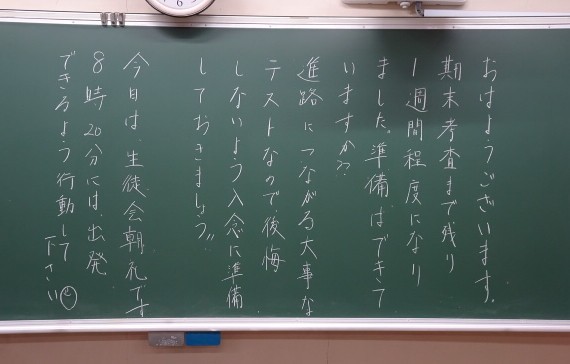 おはようございます。
期末考査まで残り
1週間程度になり
ました。準備はできて
いますか??
進路につながる大事な
テストなので、後悔
しないよう入念に準備
しておきましょう!!
今日は生徒会朝礼です
8時20分には、出発
できるよう行動して
下さい
6